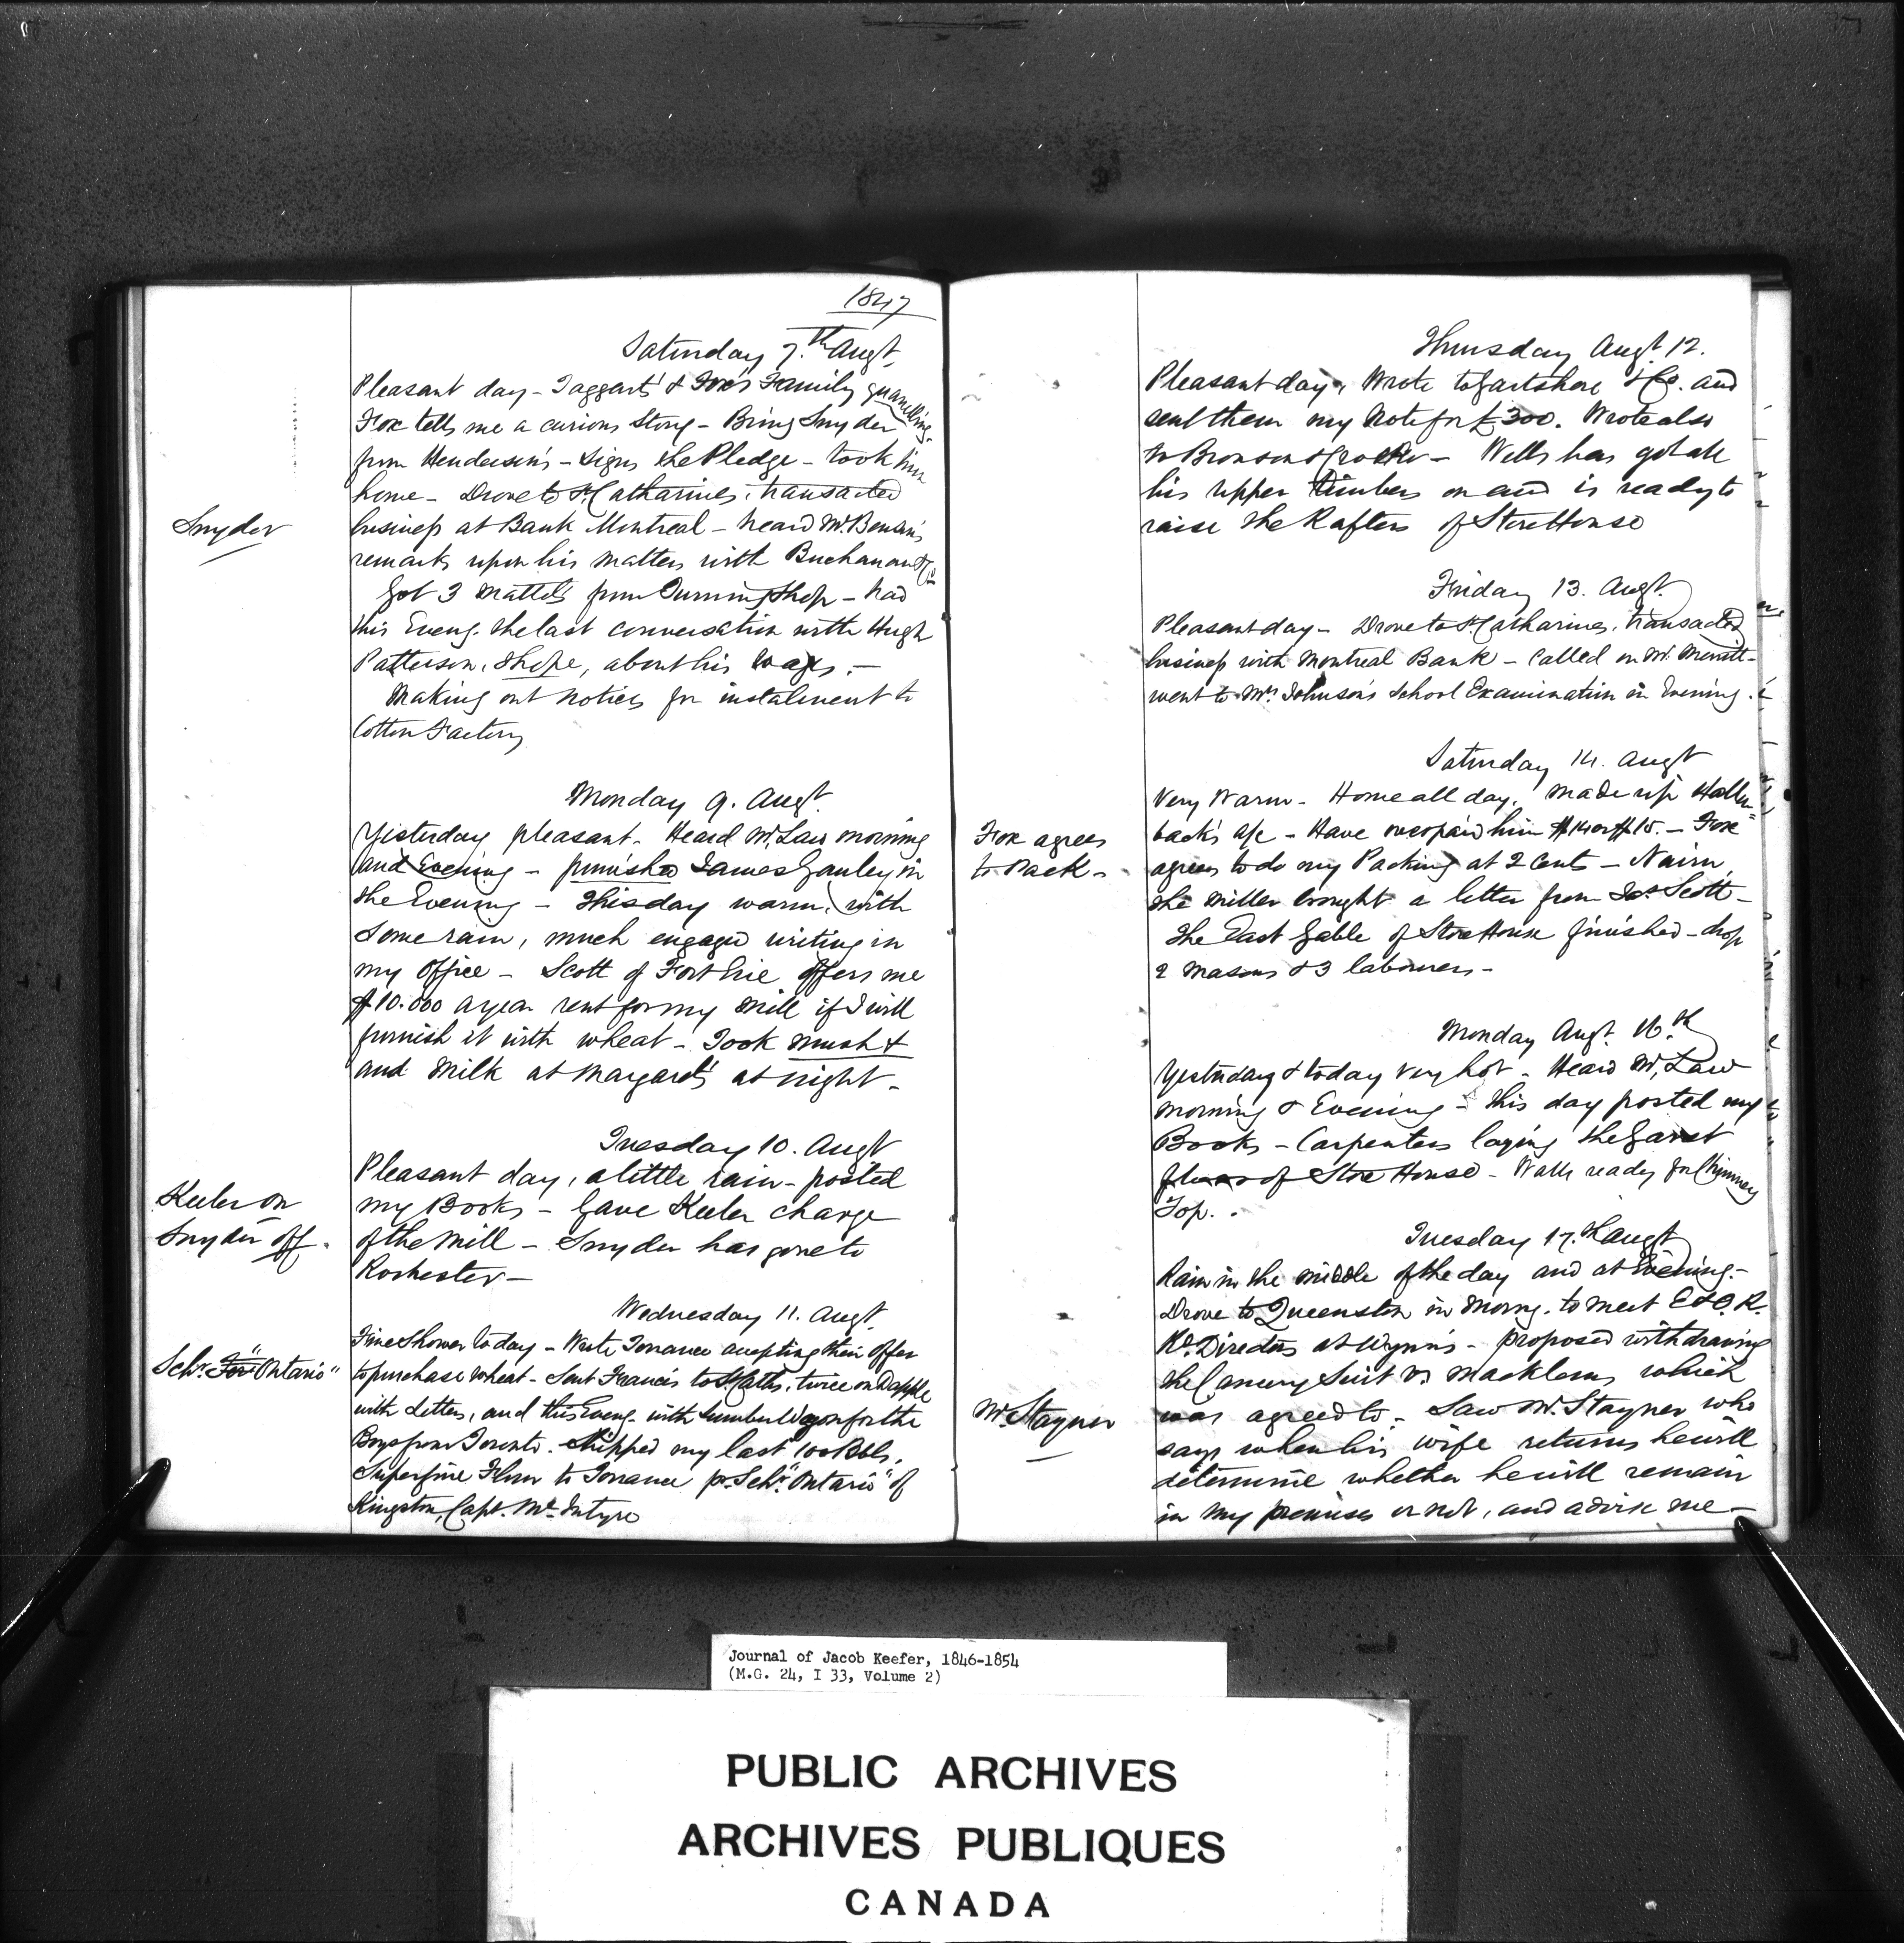 1847
Saturday 7.th Augt.
Pleasant day - Taggart's & Fox's Family quarrelling.
Fox tells me a curious Story - Bring Snyder
from Henderson's - Signs the Pledge - took him
home - Drove to St. Catharines, transacted
Snyder
business at Bank Montreal - heard Mr. Benson's
remarks upon his matters with Buchanan & Co
Got 3 Mattels from Turning Shop - had
this Eveng. the last conversation with Hugh
Patterson, I hope, about his wages. -
Making out notices for instalment to
Cotton Factory
Monday 9. Augt.
Yesterday pleasant. Heard Mr. Law morning
and Evening - punished James Ganley in
the Evening - This day warm, with
Some rain, much engaged writing in
my Office - Scott of Fort Erie offers me
$10.000 a year rent for my Mill if I will
furnish it with wheat - Took mush &
and Milk at Margaret's at night -
Tuesday 10. Augt
Pleasant day, a little rain - posted
Keeler on
my Books - Gave Keeler charge
Snyder off.
of the Mill - Snyder has gone to
Rochester -
Wednesday 11. Augt.
Fine Shower today - Wrote Torrance accepting their Offer
Schr. "Ontario"
to purchase wheat - Sent Francis to St. Caths. twice on Dapple
with Letters, and this Eveng. with Lumber Wagon for the
Boys from Toronto. Shipped my last 100 Bbls.
Superfine Flour to Torrance pr. Schr. "Ontario" of
Kingston, Capt. McIntyre
Thursday Augt. 12.
Pleasant day, Wrote to Gartshore & Co. and
sent them my Note for £300. Wrote also
to Bronson & Crocker - Wells has got all
his upper Timbers on and is ready to
raise the Rafters of Store House
Friday 13. Augt.
Pleasant day - Drove to St. Catharines, transacted
business with Montreal Bank - Called on Mr. Merritt -
went to Mrs. Johnson's School Examination in Evening.
Saturday 14. Augt
Very Warm - Home all day, made up Hallen=
Fox agrees
back's a/c - Have overpaid him $14 or $15. - Fox
to Pack -
agrees to do my Packing at 2 Cents - Nairn,
the Miller brought a letter from Jas. Scott -
The East Gable of Store House finished - drop
2 Masons & 3 labourers -
Monday Augt. 16.th
Yesterday & today very hot - Heard Mr. Law
morning & Evening - This day posted my
Books - Carpenters laying the Garret
floor of Store House - Walls ready for Chimney
Top. .
Tuesday 17.th Augt
Rain in the middle of the day and at Evening. -
Drove to Queenston in Morng. to meet E & O. R.
Rd. Directors at Wynn's - proposed withdrawing
the Chancery Suit vs. Macklem, which
Mr. Stayner
was agreed to - Saw Mr. Stayner who
says when his wife returns he will
determine whether he will remain
in my premises or not, and advise me -
Journal of Jacob Keefer, 1846-1854
(M.G. 24, I 33, Volume 2)
PUBLIC ARCHIVES
ARCHIVES PUBLIQUES
CANADA